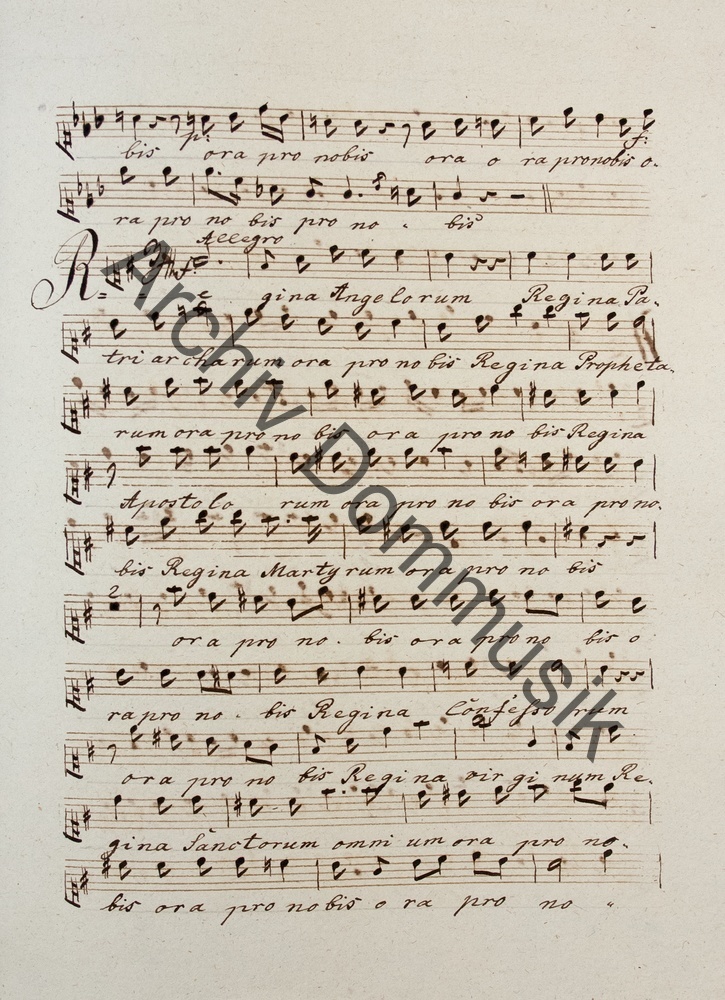 p: f:
bis ora pro nobis ora o ra pro nobis o-
ra pro no bis pro no - bis
Allegro
Re gina Angelorum Regina Pa-
tri archarum ora pro nobis Regina Propheta-
rum ora pro no bis ora pro no bis Regina
Apostolo rum ora pro no bis ora pro no-
bis Regina Martyrum ora pro no bis
2
ora pro no - bis ora pro no bis o
ra pro no - bis Regina Confesso rum
ora pro no bis Regina vir gi num Re-
gina Sanctorum omni um ora pro no-
bis ora pro nobis o ra pro no "
Archiv Dommusik